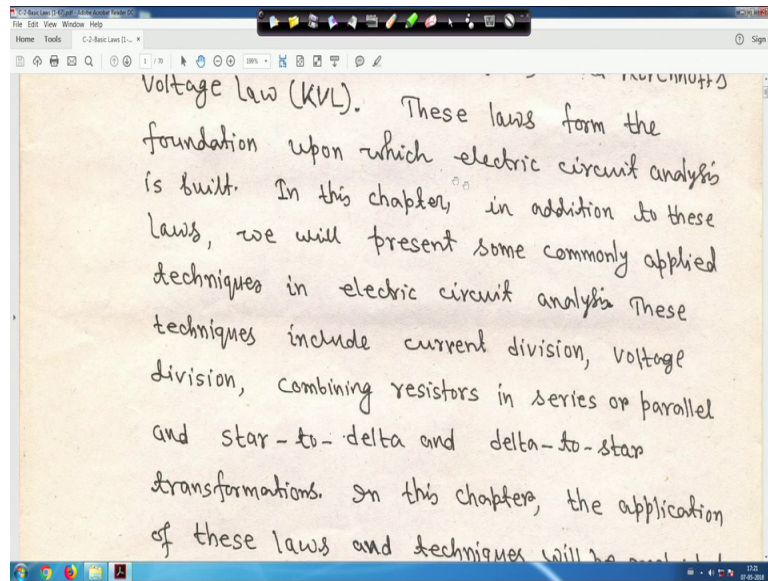 C-2-Basic Laws [1-67].pdf - Adobe Acrobat Reader DC
File Edit View Window Help
Home Tools C-2-Basic Laws [1-... × Sign
1 / 70
Voltage law (KVL). These laws form the
foundation upon which electric circuit analysis
is built. In this chapter, in addition to these
laws, we will present some commonly applied
techniques in electric circuit analysis. These
techniques include current division, voltage
division, combining resistors in series or parallel
and star-to-delta and delta-to-star
transformations. In this chapter, the application
of these laws and techniques will be
17:21